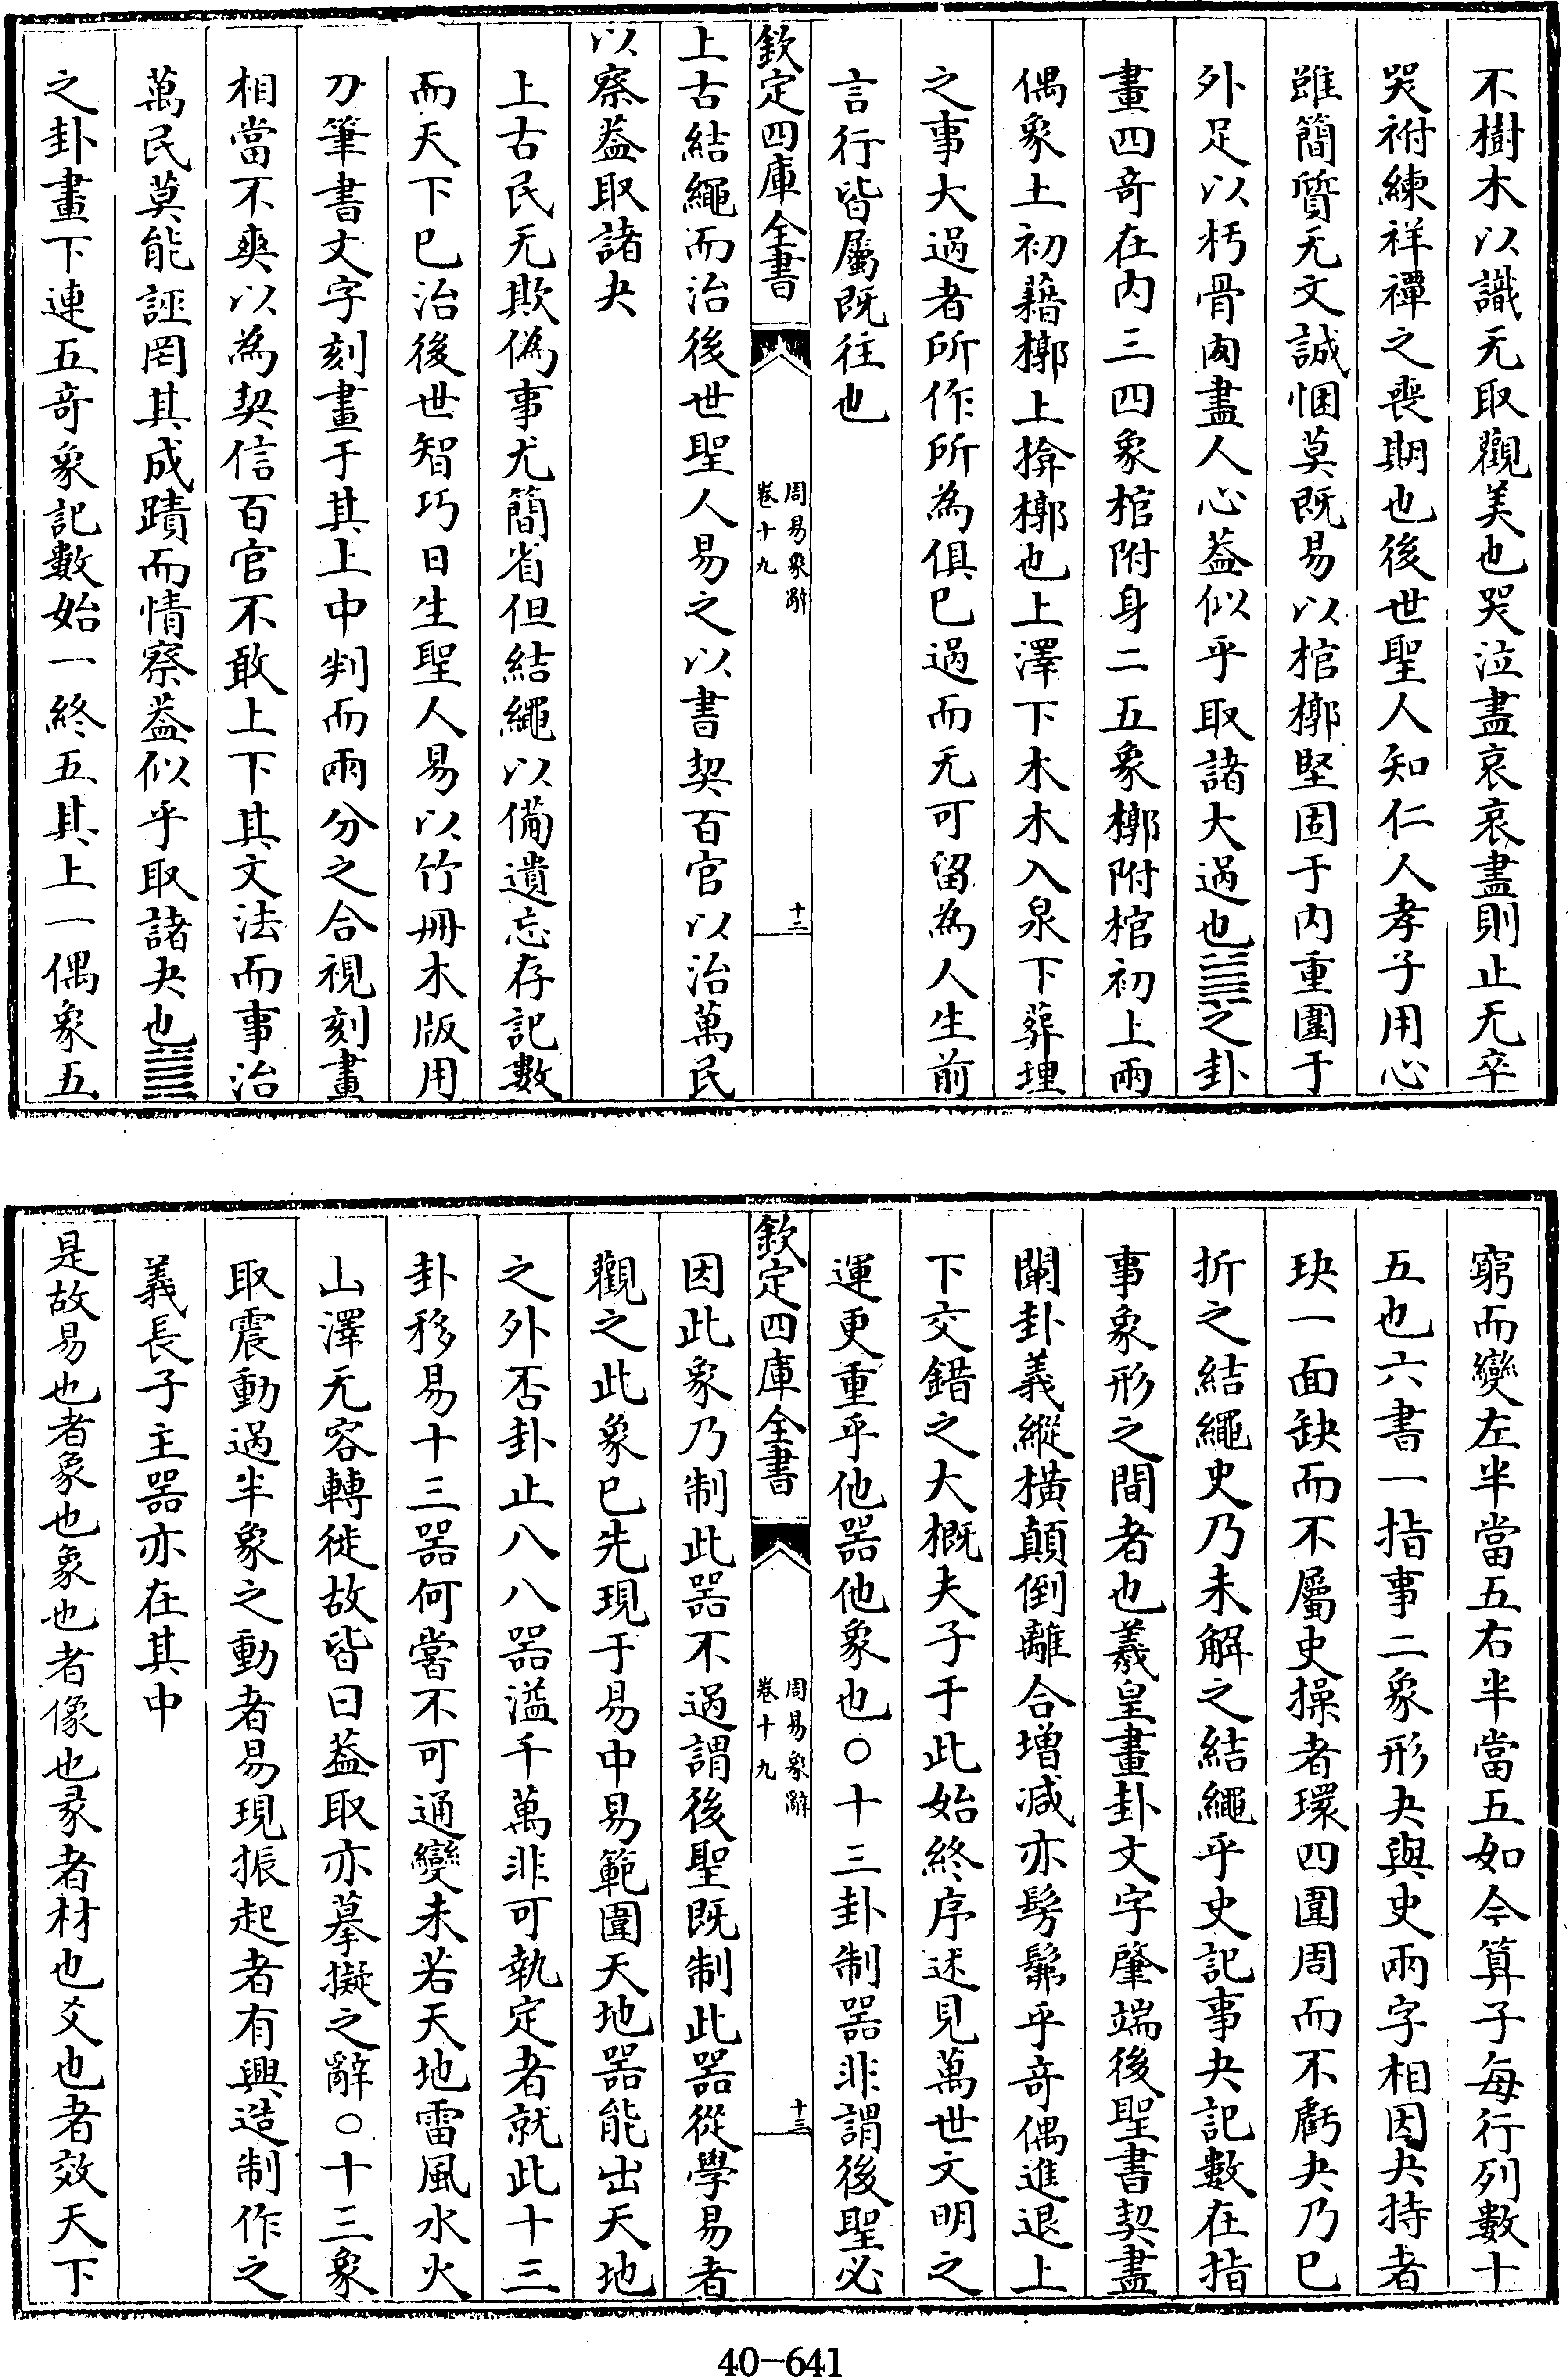 不樹木以識无取觀美也哭泣盡哀哀盡則止无卒
哭祔練祥禫之喪期也後世聖人知仁人孝子用心
雖簡質无文誠悃莫既易以棺槨堅固于内重圍于
外足以朽骨肉盡人心蓋似乎取諸大過也䷛之卦
畫四奇在内三四象棺附身二五象槨附棺初上兩
偶象土初藉槨上揜槨也上澤下木木入泉下葬埋
之事大過者所作所為俱已過而无可留為人生前
言行皆屬既往也
欽定四庫全書
周易象辭
卷十九
十二
上古結繩而治後世聖人易之以書契百官以治萬民
以察蓋取諸夬
上古民无欺偽事尤簡省但結繩以備遺忘存記數
而天下已治後世智巧日生聖人易以竹冊木版用
刀筆書文字刻畫于其上中判而兩分之合視刻畫
相當不爽以為契信百官不敢上下其文法而事治
萬民莫能誣罔其成蹟而情察蓋似乎取諸夬也䷪
之卦畫下連五奇象記數始一終五其上一偶象五
窮而變左半當五右半當五如今算子每行列數十
五也六書一指事二象形夬與史兩字相因夬持者
玦一面缺而不屬史操者環四圍周而不虧夬乃已
折之結繩史乃未解之結繩乎史記事夬記數在指
事象形之間者也羲皇畫卦文字肇端後聖書契盡
闡卦義縱橫顛倒離合增减亦髣髴乎奇偶進退上
下交錯之大概夫子于此始終序述見萬世文明之
運更重乎他器他象也○十三卦制器非謂後聖必
欽定四庫全書
周易象辭
卷十九
十三
因此象乃制此器不過謂後聖既制此器從學易者
觀之此象已先現于易中易範圍天地器能出天地
之外否卦止八八器溢千萬非可執定者就此十三
卦移易十三器何嘗不可通變未若天地雷風水火
山澤无容轉徙故皆曰蓋取亦摹擬之辭○十三象
取震動過半象之動者易現振起者有興造制作之
義長子主器亦在其中
是故易也者象也象也者像也彖者材也爻也者效天下
40-641